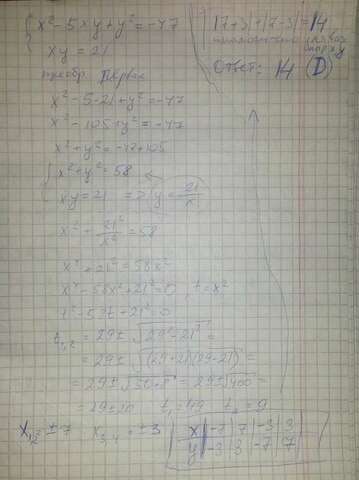 { x² - 5xy + y² = -47
xy = 21
x² - 5·21 + y² = -47
x² - 105 + y² = -47
x² + y² = -47 + 105
{ x² + y² = 58
xy = 21 => y = 21/x
x² + 21²/x² = 58
x⁴ + 21² = 58x²
x⁴ - 58x² + 21² = 0, t = x²
t² - 58t + 21² = 0
t₁,₂ = 29 ± √(29² - 21²) =
= 29 ± √((29+21)(29-21)) =
= 29 ± √(50·8) = 29 ± √400 =
= 29 ± 20 t₁ = 49 t₂ = 9
x₁,₂ = ±7 x₃,₄ = ±3
x | -7 | 7 | -3 | 3
y | -3 | 3 | -7 | 7
|7+3| + |7-3| = 14
Ответ: 14 (D)